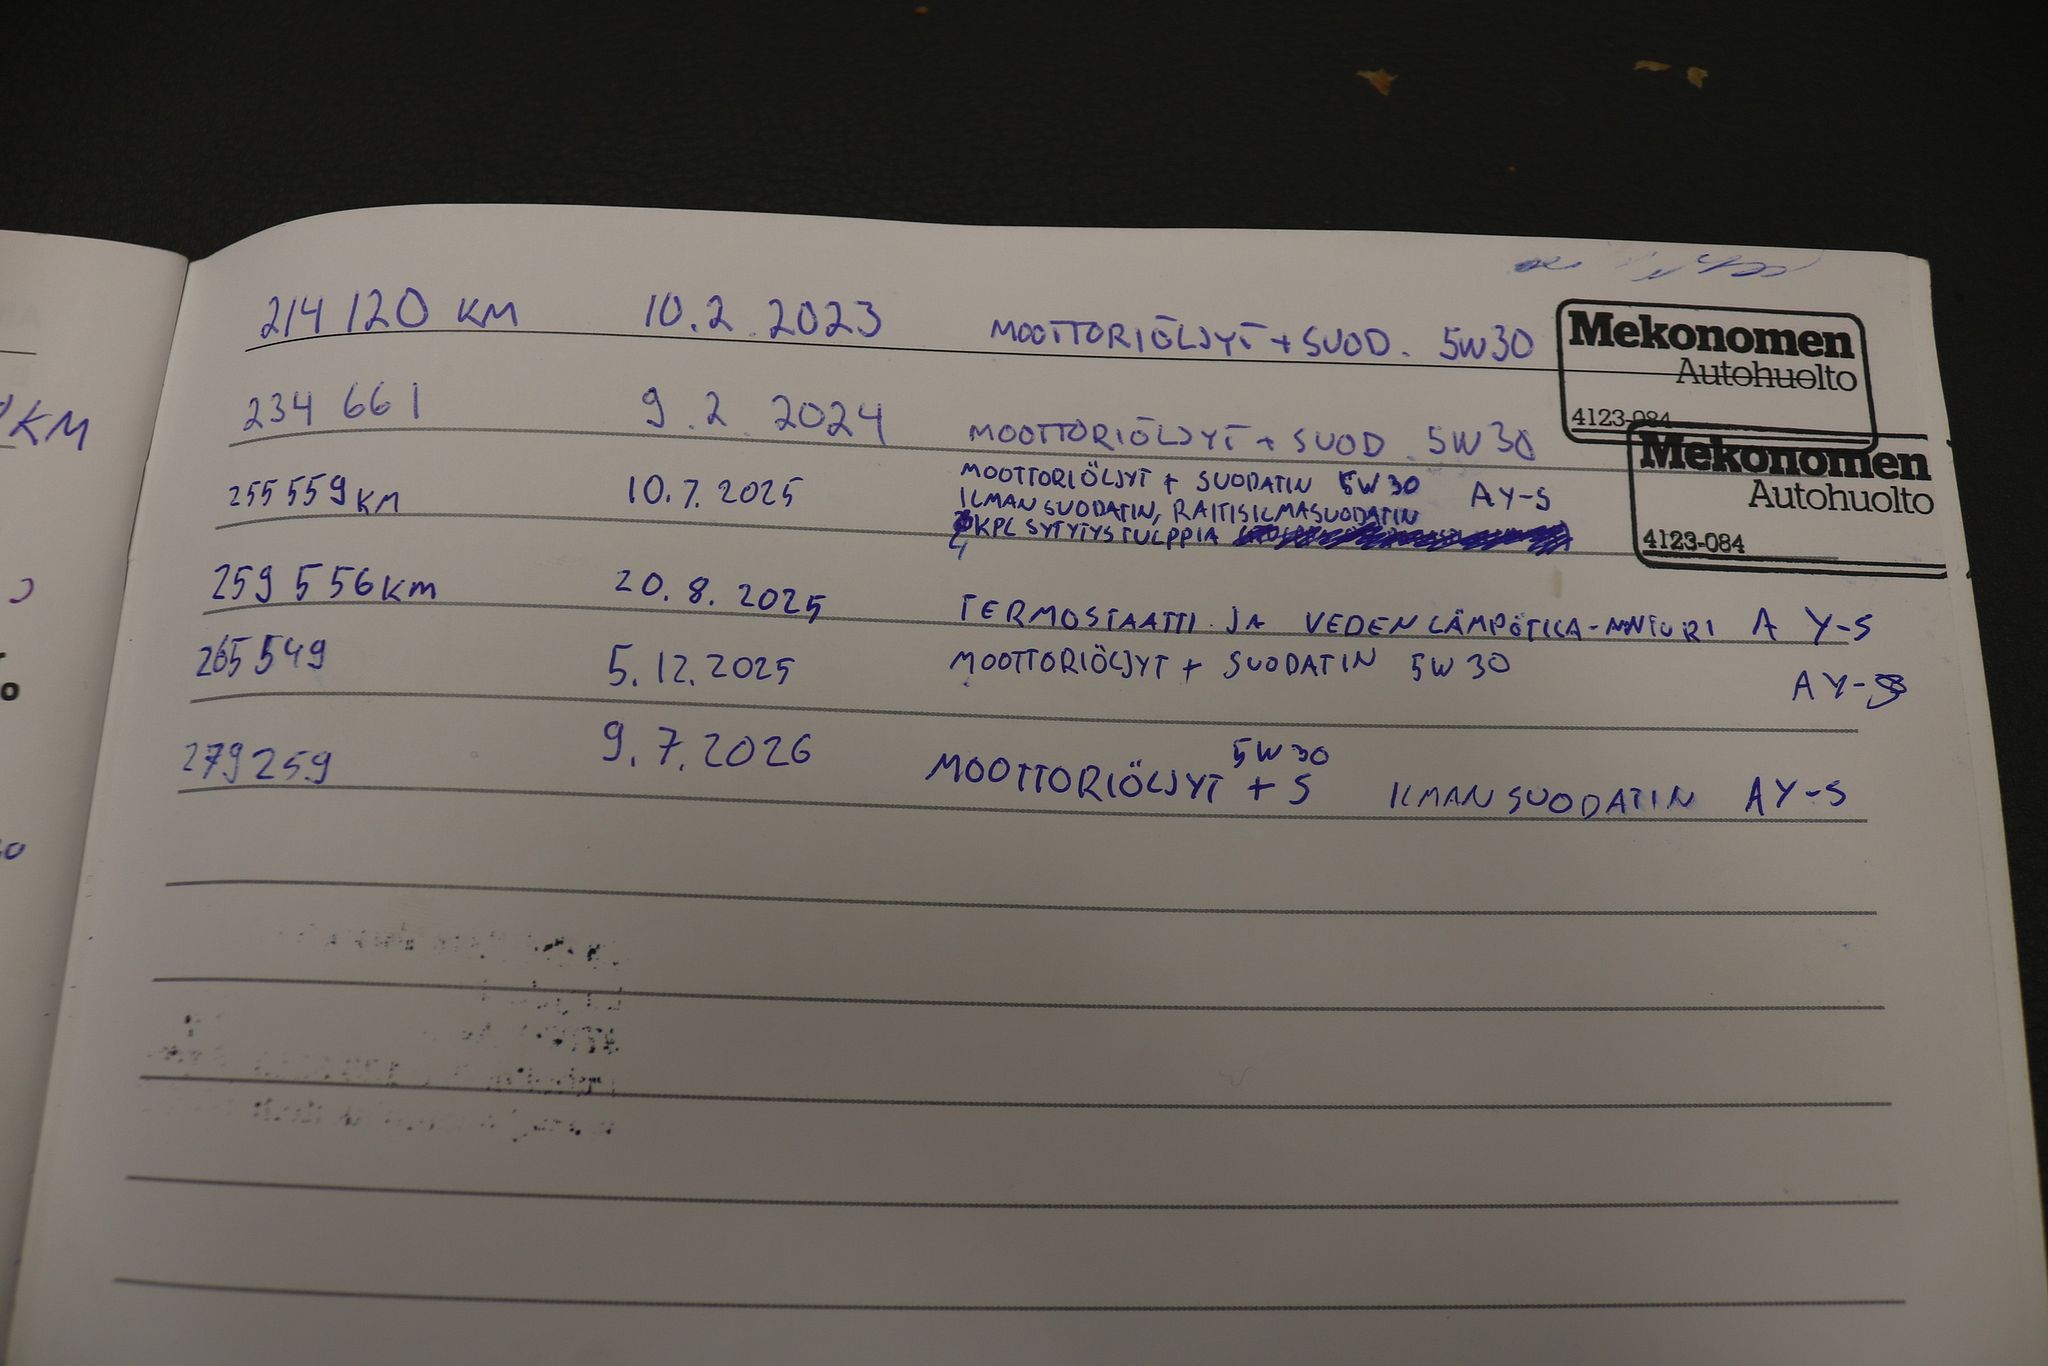 214 120 KM 10.2.2023 MOOTTORIÖLJYT + SUOD. 5W30
Mekonomen
Autohuolto
4123-084
234 661 9.2.2024 MOOTTORIÖLJYT + SUOD. 5W30
Mekonomen
Autohuolto
4123-084
255 559 KM 10.7.2025 MOOTTORIÖLJYT + SUODATIN 5W30 AY-S
ILMANSUODATIN, RAITISILMASUODATIN
4 KPL SYTYTYSTULPPIA
259 556 KM 20.8.2025 TERMOSTAATTI JA VEDENLÄMPÖTILA-ANTURI AY-S
265 549 5.12.2025 MOOTTORIÖLJYT + SUODATIN 5W30 AY-S
279259 9.7.2026 MOOTTORIÖLJYT 5W30 + S ILMANSUODATIN AY-S
KM